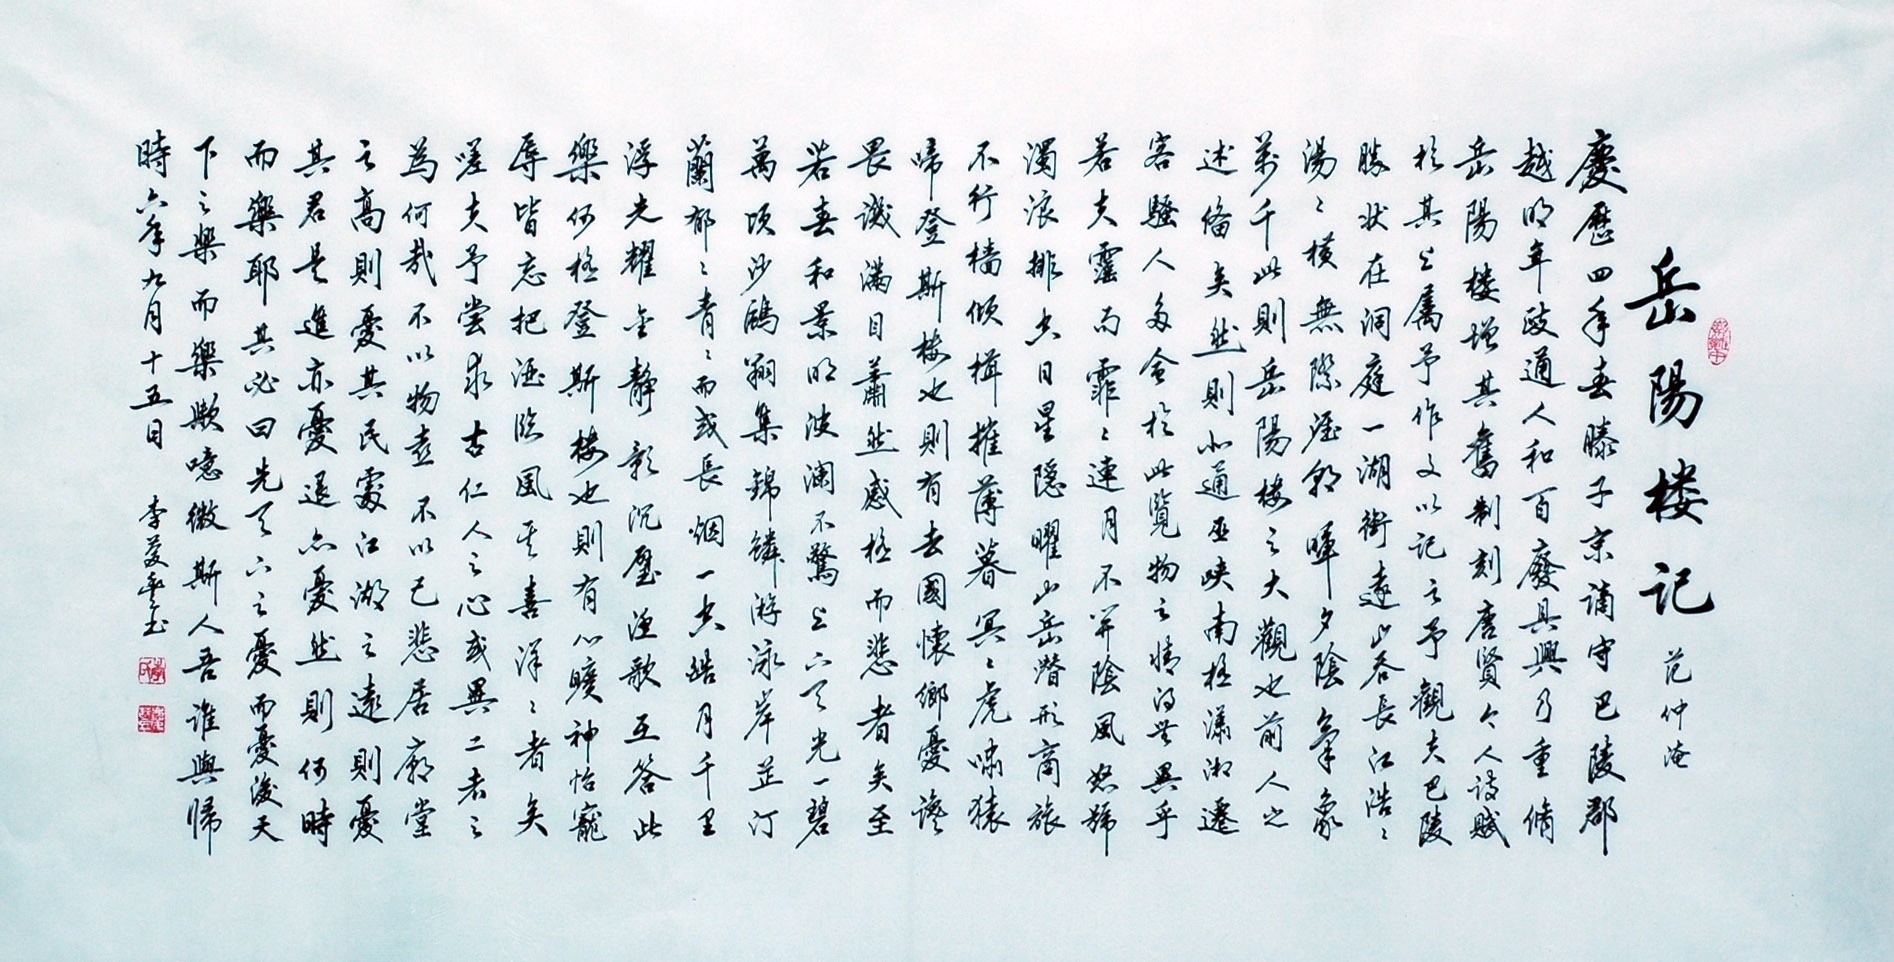 岳陽楼记 范仲淹
慶歷四年春滕子京谪守巴陵郡
越明年政通人和百廢具興乃重脩
岳陽楼增其舊制刻唐賢今人詩賦
於其上属予作文以记之予觀夫巴陵
勝状在洞庭一湖銜遠山吞長江浩〻
湯〻横無際涯朝暉夕陰氣象
萬千此則岳陽楼之大觀也前人之
述備矣然則北通巫峡南極瀟湘遷
客騷人多會於此覽物之情得無異乎
若夫霪雨霏〻連月不開陰風怒號
濁浪排空日星隱曜山岳潛形商旅
不行檣傾楫摧薄暮冥〻虎嘯猿
啼登斯楼也則有去國懷鄉憂讒
畏譏滿目蕭然感極而悲者矣至
若春和景明波瀾不驚上下天光一碧
萬頃沙鷗翔集錦鱗游泳岸芷汀
蘭郁〻青〻而或長烟一空皓月千里
浮光耀金靜影沉璧渔歌互答此
樂何極登斯楼也則有心曠神怡寵
辱皆忘把酒臨風其喜洋〻者矣
嗟夫予嘗求古仁人之心或異二者之
為何哉不以物喜不以己悲居廟堂
之高則憂其民處江湖之遠則憂
其君是進亦憂退亦憂然則何時
而樂耶其必曰先天下之憂而憂後天
下之樂而樂歟噫微斯人吾誰與歸
時六年九月十五日 李